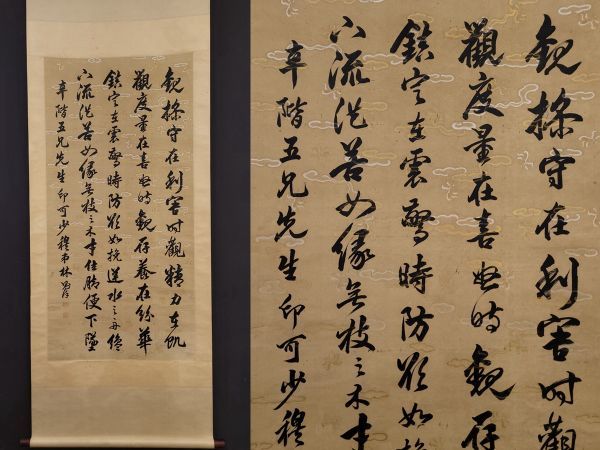 觀操守在利害時觀精力在飢
觀度量在喜怒時觀存養在紛華
鎮定在震驚時防欲如挽逆水之舟
下流從善如緣無枝之木才住脚便下墜
辛階五兄先生印可少穆弟林則徐
觀操守在利害時觀
觀度量在喜怒時觀存
鎮定在震驚時防欲如挽
下流從善如緣無枝之木才
辛階五兄先生印可少穆